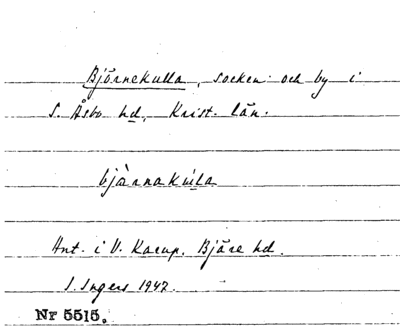 Björnekulla, socken och by i
S. Åsbo hd, Krist. län.
bjàrnakúlla
Ant. i V. Karup, Bjäre hd.
I. Ingers 1947.
Nr 5515.